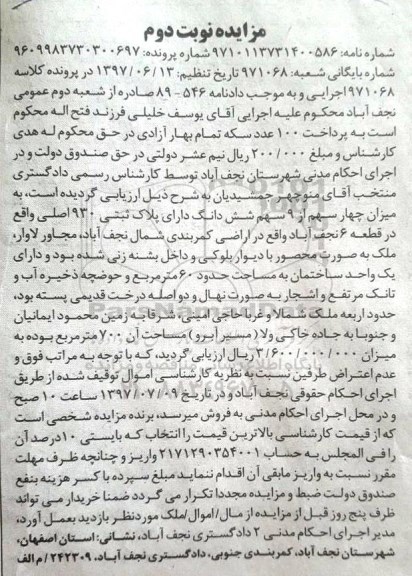 مزایده نوبت دوم
شماره نامه: ۹۷۱۰۱۱۳۷۳۱۴۰۰۵۸۶ شماره پرونده: ۹۶۰۹۹۸۳۷۳۰۳۰۰۶۹۷
شماره بایگانی شعبه: ۹۷۱۰۶۸ تاریخ تنظیم: ۱۳۹۷/۰۶/۱۳ در پرونده کلاسه
۹۷۱۰۶۸ اجرایی و به موجب دادنامه ۵۴۶ - ۸۹ صادره از شعبه دوم عمومی
نجف آباد محکوم علیه اجرایی آقای یوسف خلیلی فرزند فتح اله محکوم
است به پرداخت ۱۰۰ عدد سکه تمام بهار آزادی در حق محکوم له هدی
کارشناس و مبلغ ۲۰۰/۰۰۰ ریال نیم عشر دولتی در حق صندوق دولت و در
اجرای احکام مدنی شهرستان نجف آباد توسط کارشناس رسمی دادگستری
منتخب آقای منوچهر جمشیدیان به شرح ذیل ارزیابی گردیده است، به
میزان چهار سهم از ۹ سهم شش دانگ دارای پلاک ثبتی ۹۳۰ اصلی واقع
در قطعه ۶ نجف آباد واقع در اراضی کمربندی شمال نجف آباد، مجاور لاوار،
ملک به صورت محصور با دیوار بلوکی و داخل بشنه زنی شده بود و دارای
یک واحد ساختمان به مساحت حدود ۶۰ مترمربع و حوضچه ذخیره آب و
تانک مرتفع و اشجار به صورت نهال و دو اصله درخت قدیمی پسته بود،
حدود اربعه ملک شمالا و غربا حاجی امینی، شرقا به زمین محمود ایمانیان
و جنوبا به جاده خاکی ولا (مسیر آبرو) مساحت آن ۷۰۰ مترمربع بوده به
میزان ۳/۶۰۰/۰۰۰/۰۰۰ ریال ارزیابی گردید، که با توجه به مراتب فوق و
عدم اعتراض طرفین نسبت به نظر به کارشناسی اموال توقیف شده از طریق
اجرای احکام حقوقی نجف آباد و در تاریخ ۱۳۹۷/۰۷/۰۹ ساعت ۱۰ صبح
و در محل اجرای احکام مدنی به فروش میرسد، برنده مزایده شخصی است
که از قیمت کارشناسی بالاترین قیمت را انتخاب که بایستی ۱۰درصد آن
را فی المجلس به حساب ۲۱۷۱۲۹۰۳۵۴۰۰۱ واریز و چنانچه ظرف مهلت
مقرر نسبت به واریز مابقی آن اقدام ننماید مبلغ سپرده با کسر هزینه بنفع
صندوق دولت ضبط و مزایده مجددا تکرار می گردد ضمنا خریدار می تواند
ظرف پنج روز قبل از مزایده از مال/اموال/ملک موردنظر بازدید بعمل آورد،
مدیر اجرای احکام مدنی ۲ دادگستری نجف آباد، نشانی: استان اصفهان،
شهرستان نجف آباد، کمربندی جنوبی، دادگستری نجف آباد، ۲۴۲۳۰۹/م الف